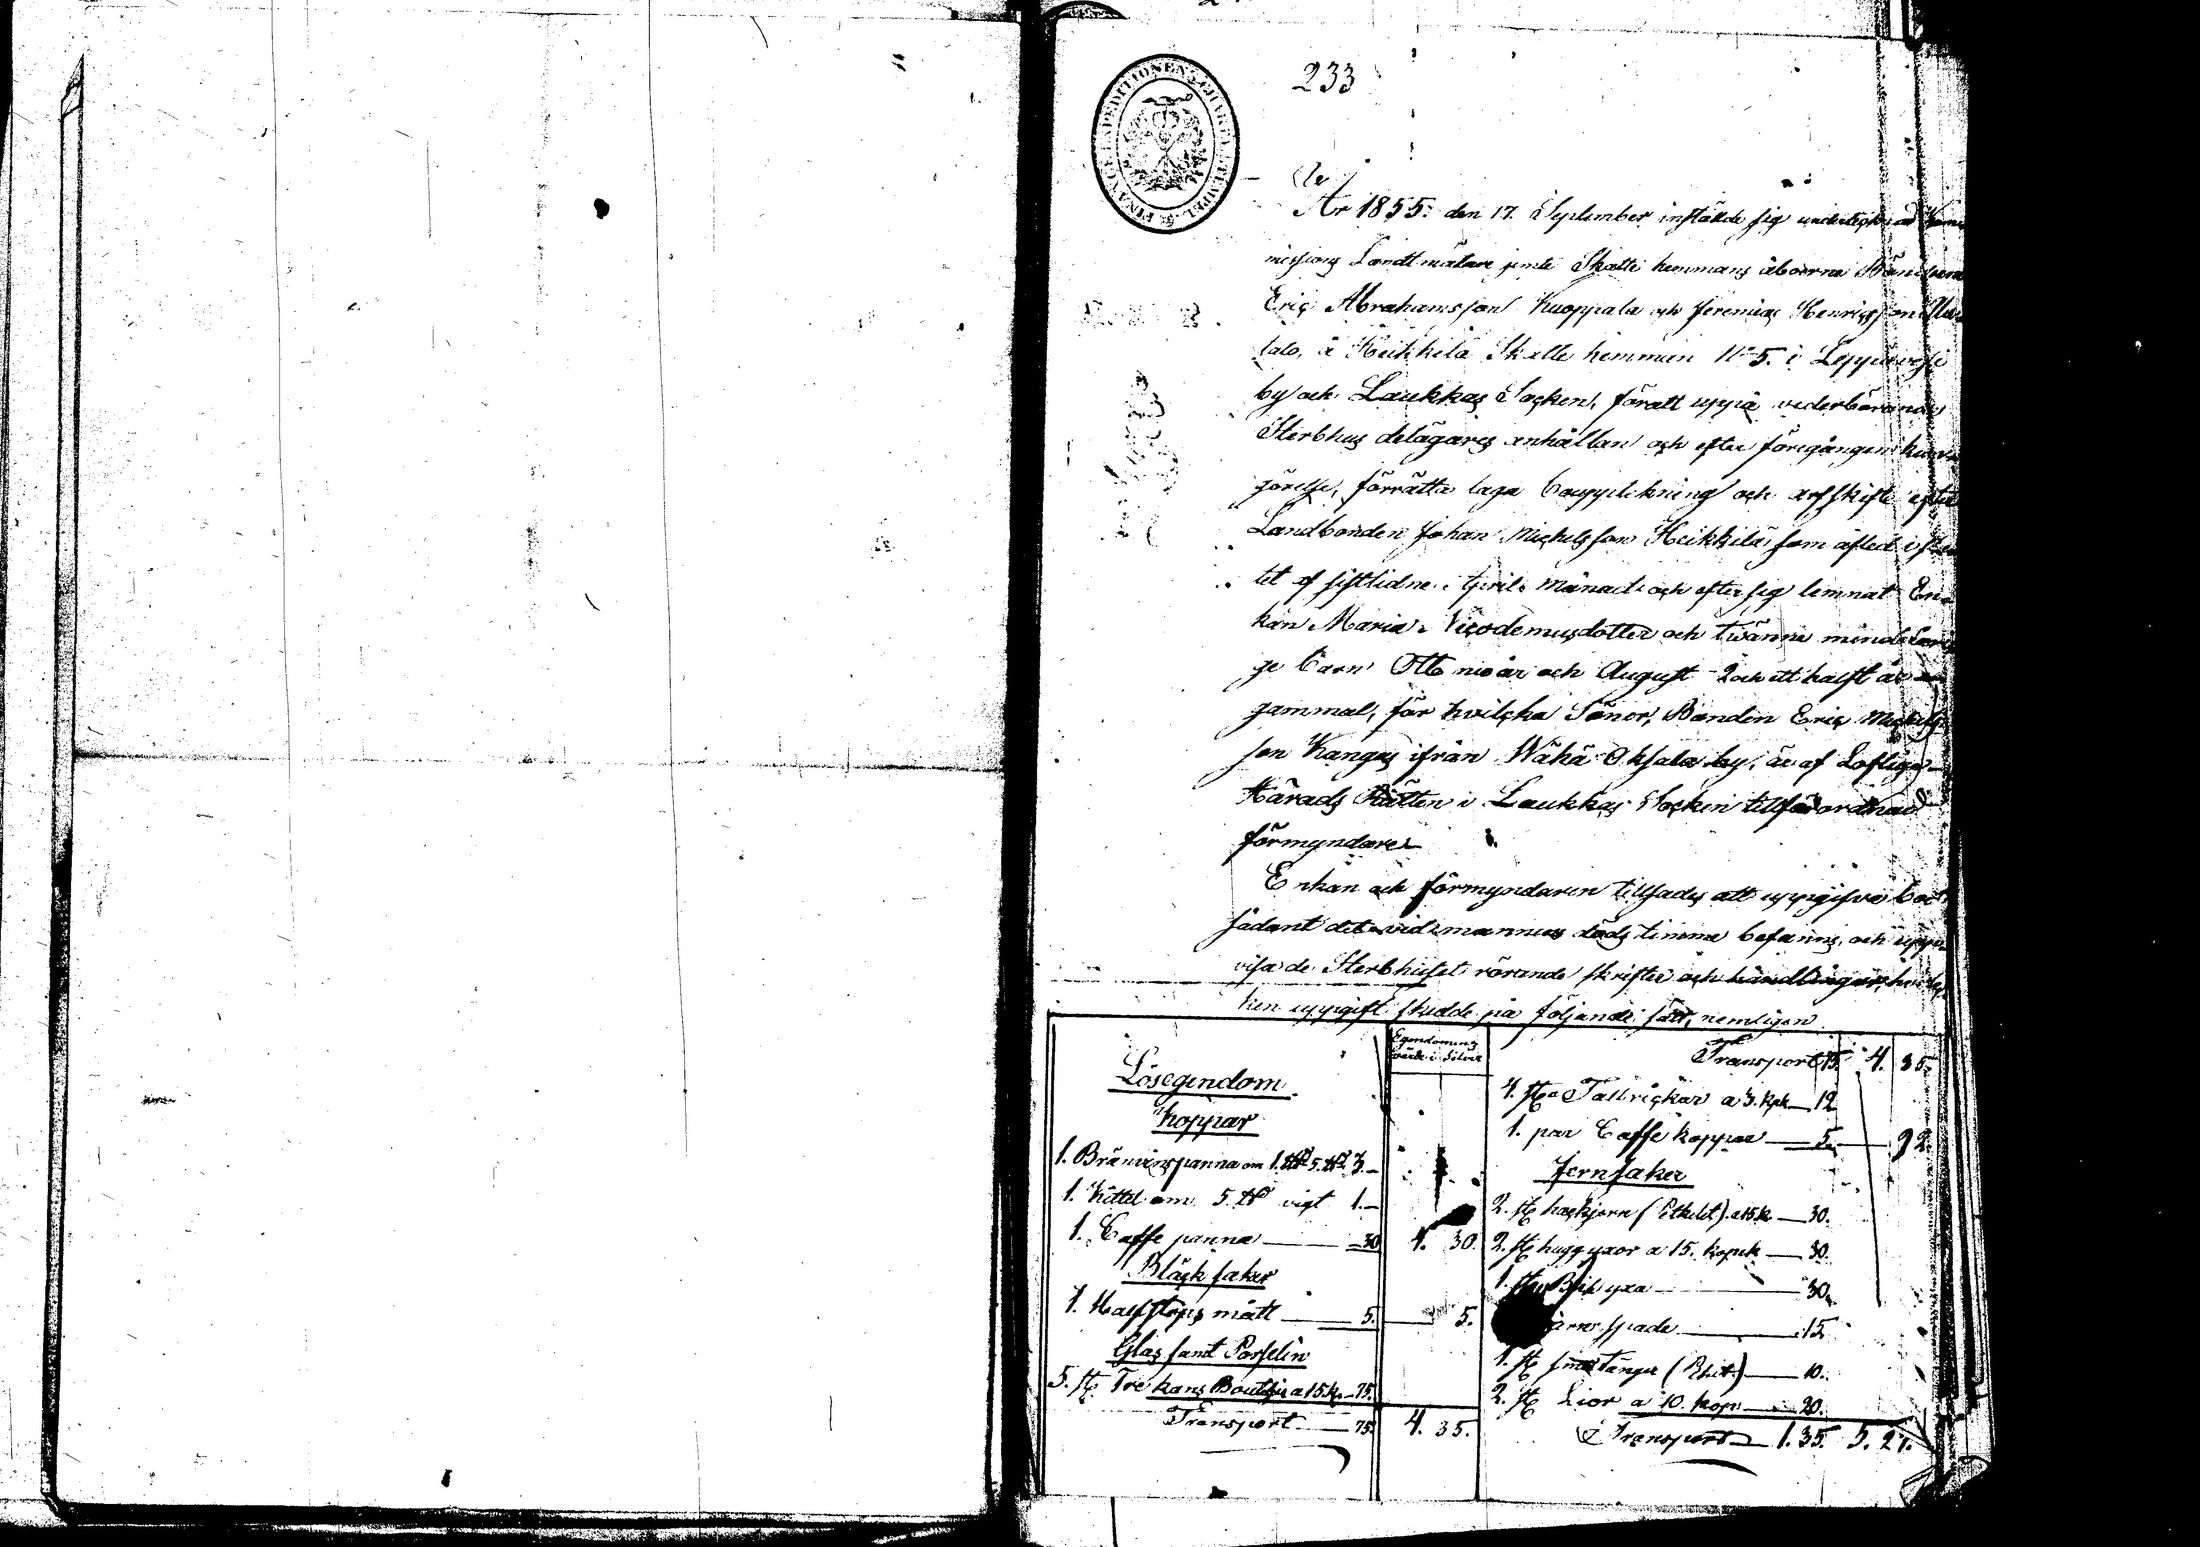 233
FINANCE EXPEDITIONENS CHARTÆ STEMPEL
År 1855. den 17. September instälde sig undertecknad Kom
missions Landtmätare jemte Skatte hemmans åboerne Bönderne
Eric Abrahamsson Kuoppala och Jeremias Henricsson
talo, å Heikkilä Skatte hemman No 5. i Leppävesi
by och Laukkas Socken, föratt uppå vederbörande
Sterbhus delägares anhållan och efter föregången kun
görelse, förrätta laga bouppteckning och arfskifte efter
Landbonden Johan Michelsson Heikkilä som afled i
tet af sistlidne April månad och efter sig lemnat En
kan Maria Nicodemusdotter och twänne minderåri
ge barn Otto nio år och August 2 och ett halft år
gammal, för hvilcka Söner, Bonden Eric Michels
son Kangas ifrån Wähä Oksala by, är af Loflige
Härads Rätten i Laukkas Socken tillförordnad
förmyndare
Enkan och förmyndaren tillsades att uppgifva boet
sådant det vid mannens döds timma befanns, och upp
visa de Sterbhuset rörande skrifter och handlingar, hvil
ken uppgift skedde på följande sätt, nemligen
Egendomens värde i Silver
Lösegendom
Koppar
1. Bränvinspanna om 1. 5. 3.
1. Kittel om 5. vigt 1.
1. Caffe panna 30 4. 30.
Bläck saker
1. Halfstops mått 5. 5.
Glas samt Porselin
5. st. Tre kans Boutelljer a 15 k. 75.
Transport 75. 4. 35.
Transport 75. 4. 35.
4. st. Tallrickar a 3. kpk 12
1. par Caffe koppar 5. 92.
Jernsaker
2. st. a 15 k. 30.
2. st. huggyxor a 15. kopek 30.
1. st. yxa 30.
spade 15.
1. st. tänger 10.
2. st. Lior a 10. kop. 20.
Transport 1. 35. 5. 27.